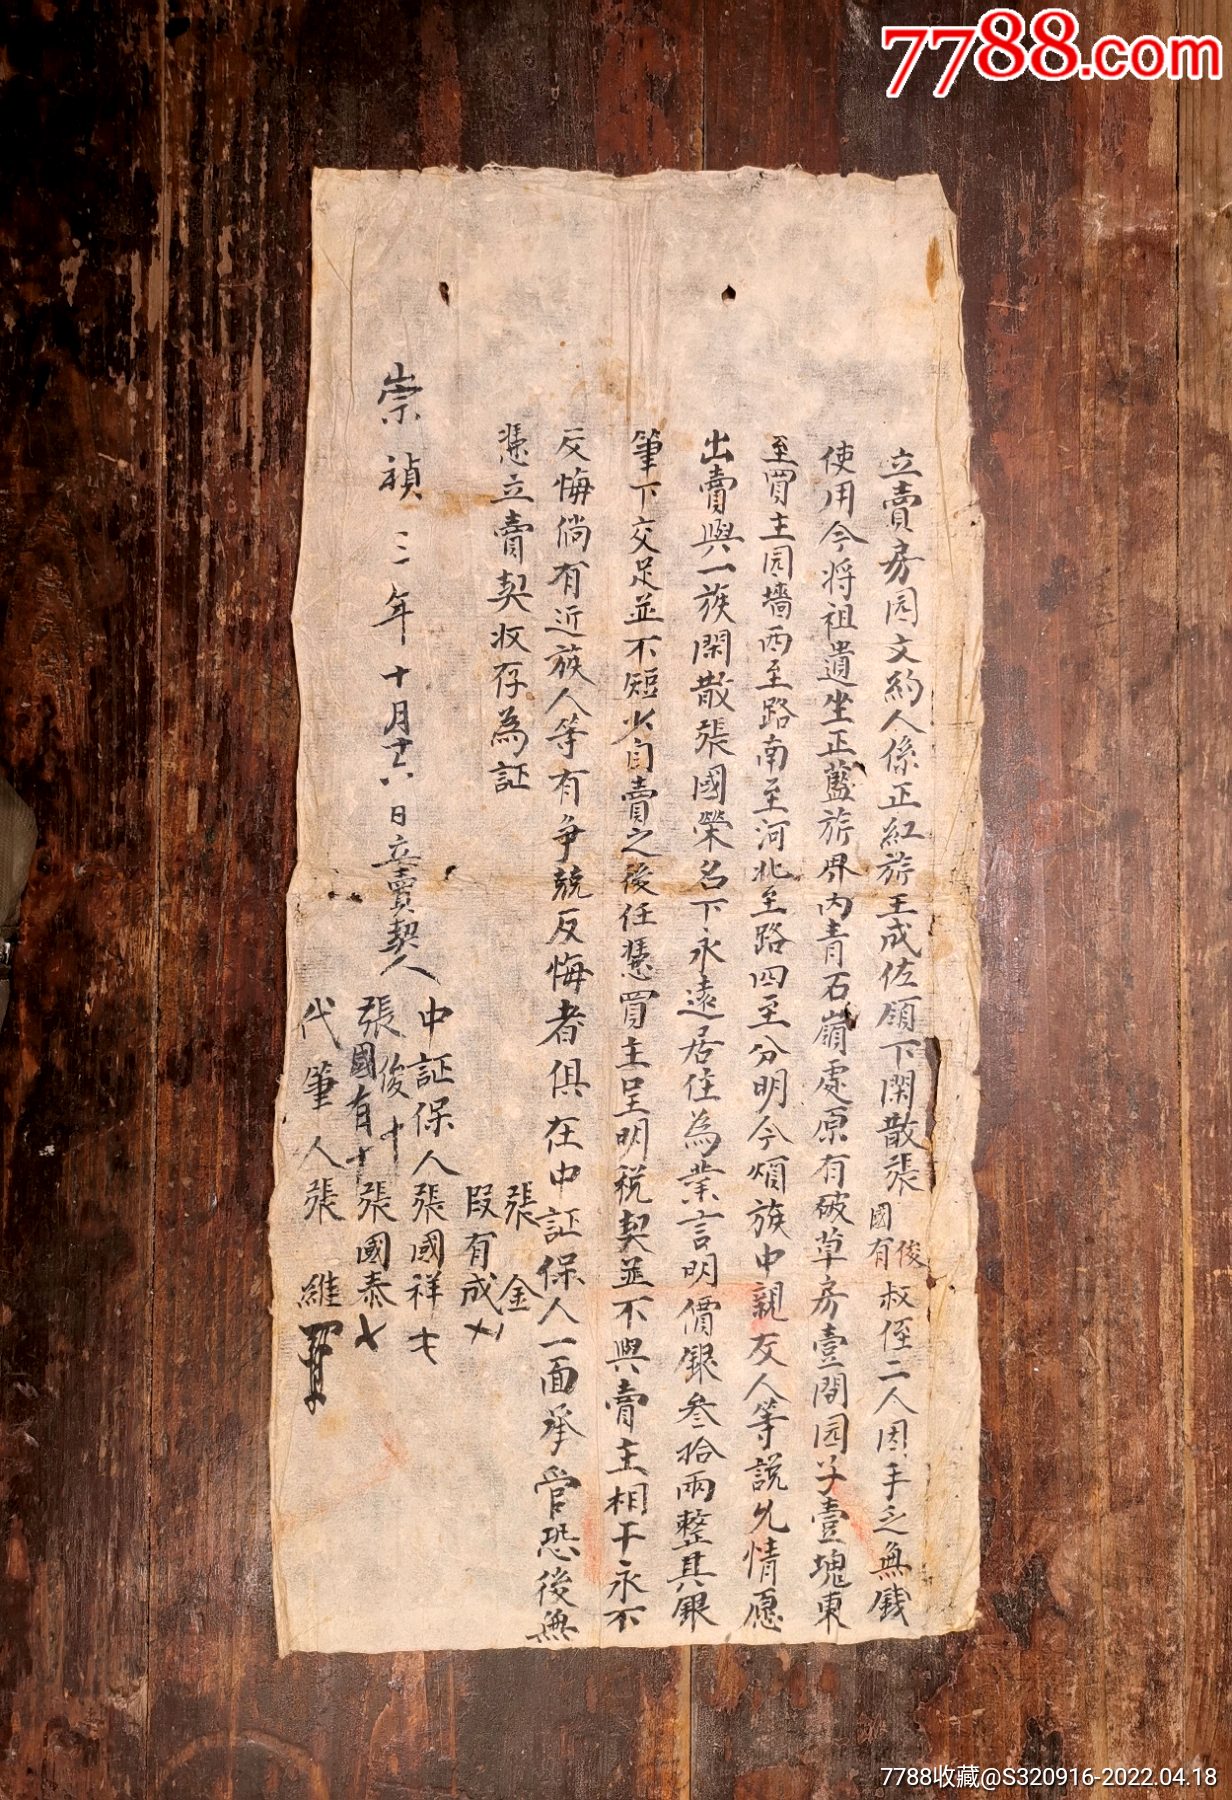 7788.com
立賣房园文約人係正紅旂王成佐領下閑散張國有俊叔侄二人因手乏無錢
使用今將祖遺坐正藍旂界內青石嶺處原有破草房壹間园子壹塊東
至買主园墻西至路南至河北至路四至分明今煩族中親友人等說允情愿
出賣與一族閑散張國榮名下永遠居住為業言明價銀叁拾兩整其銀
筆下交足並不短少自賣之後任憑買主呈明税契並不與賣主相干永不
反悔倘有近族人等有争競反悔者俱在中証保人一面承管恐後無
憑立賣契收存為証
崇禎三年十月十六日立賣契人張俊十張國有十
中証保人張金
段有成
張國祥
張國泰
代筆人張維
7788收藏@S320916-2022.04.18